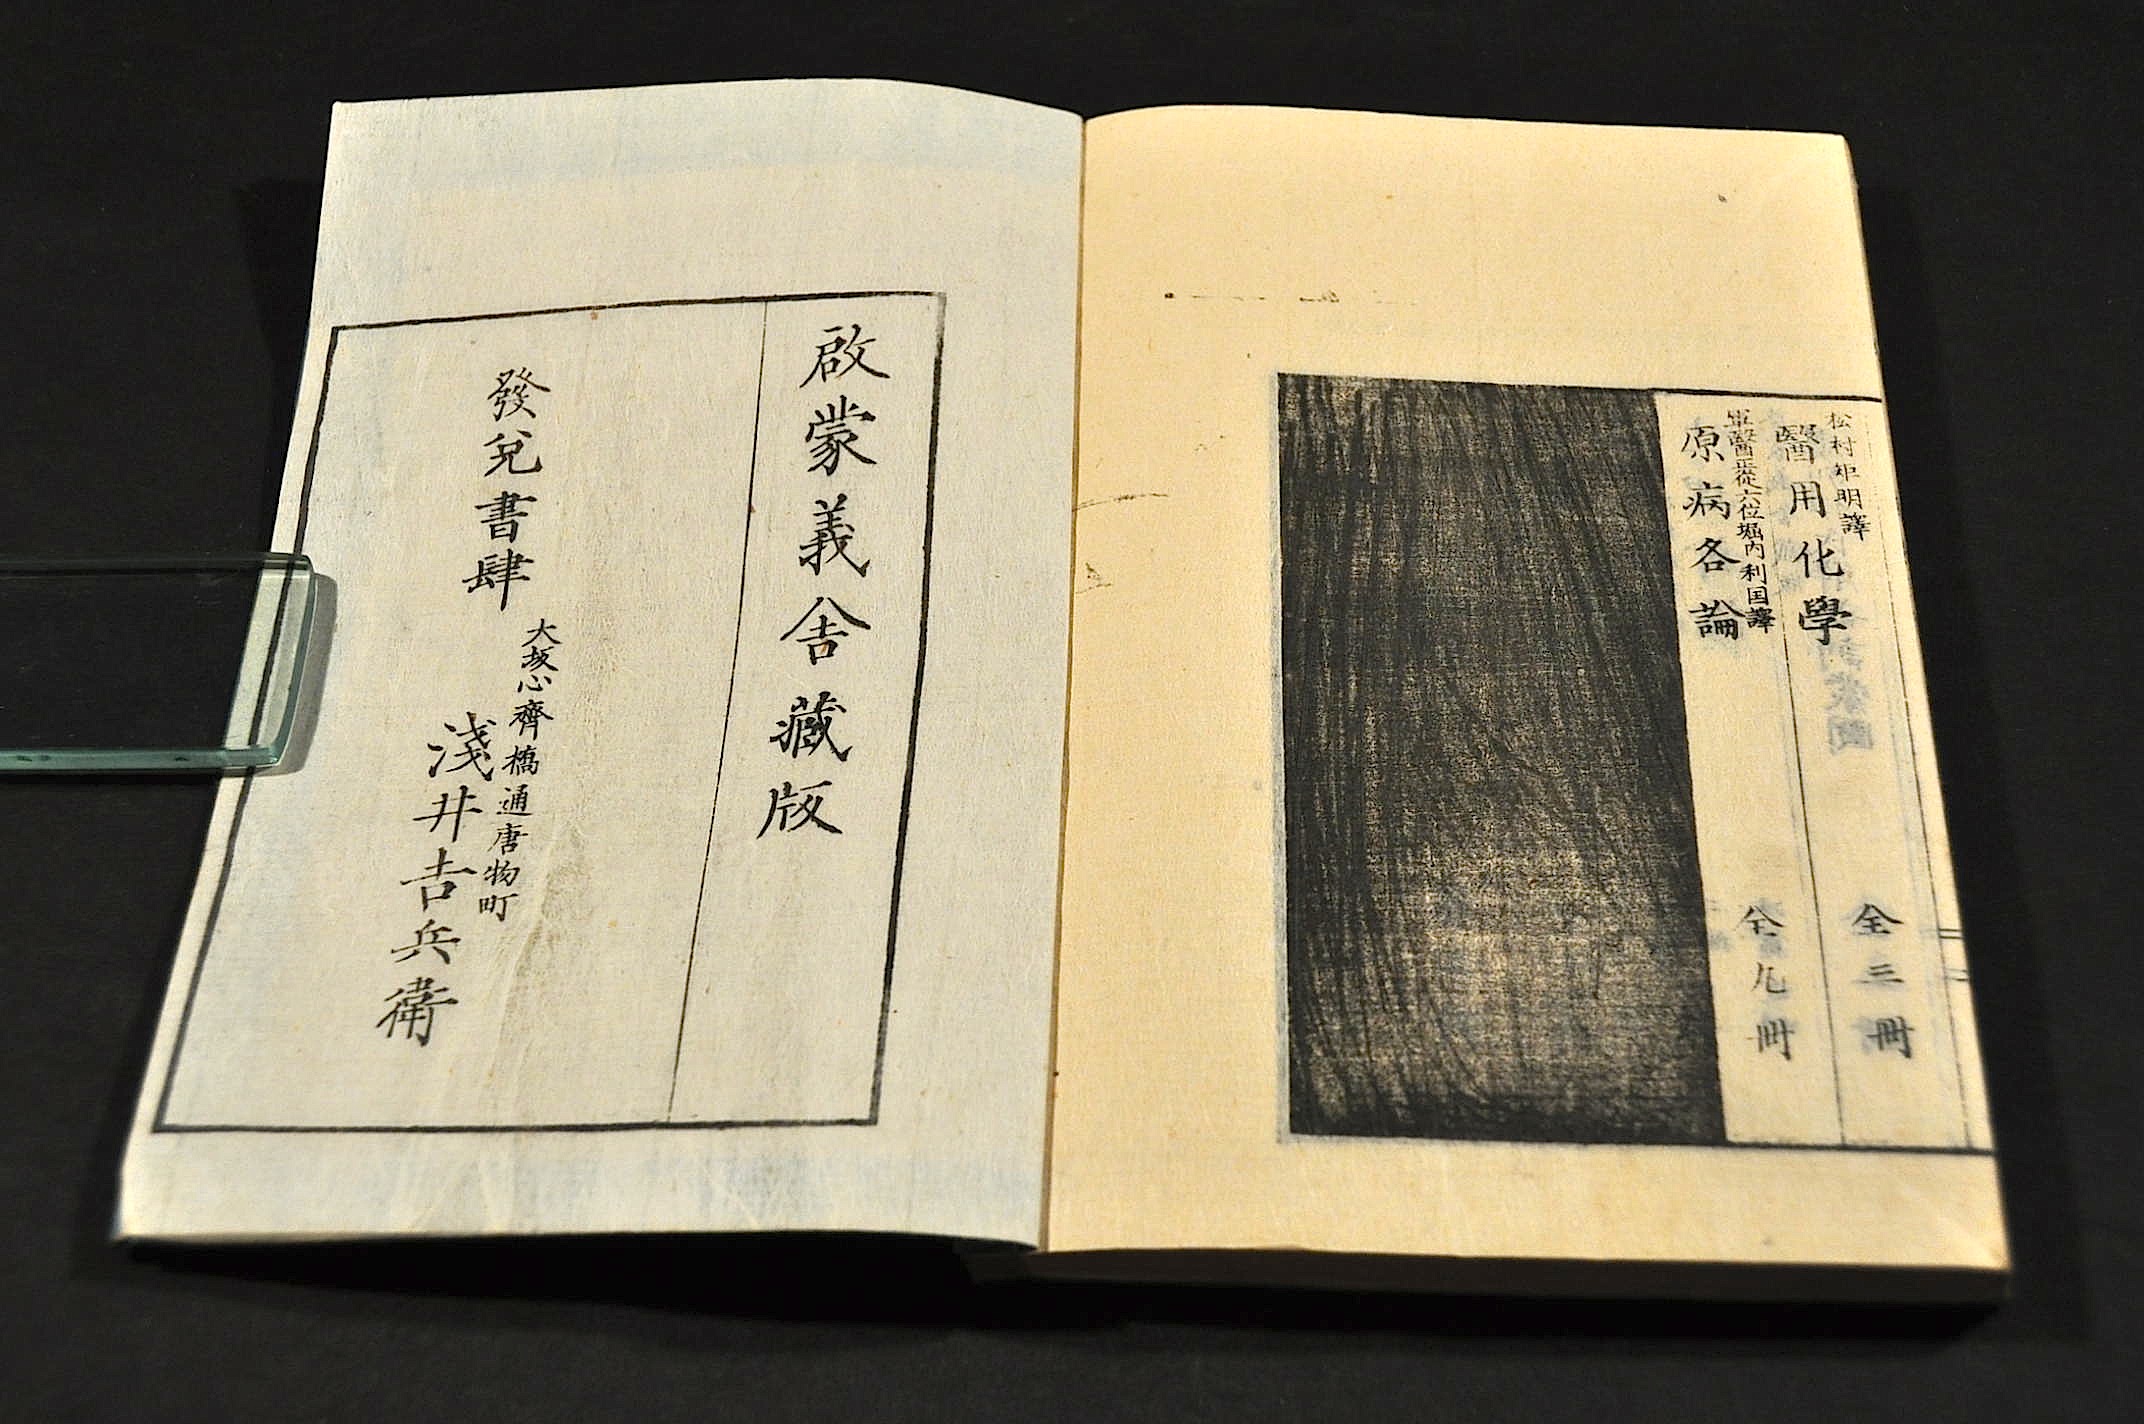 松村矩明譯
醫用化學 全三冊
軍醫従六位堀内利国譯
原病各論 全九冊
啟蒙義舎藏版
發兌書肆
大坂心齊橋通唐物町
淺井吉兵衛